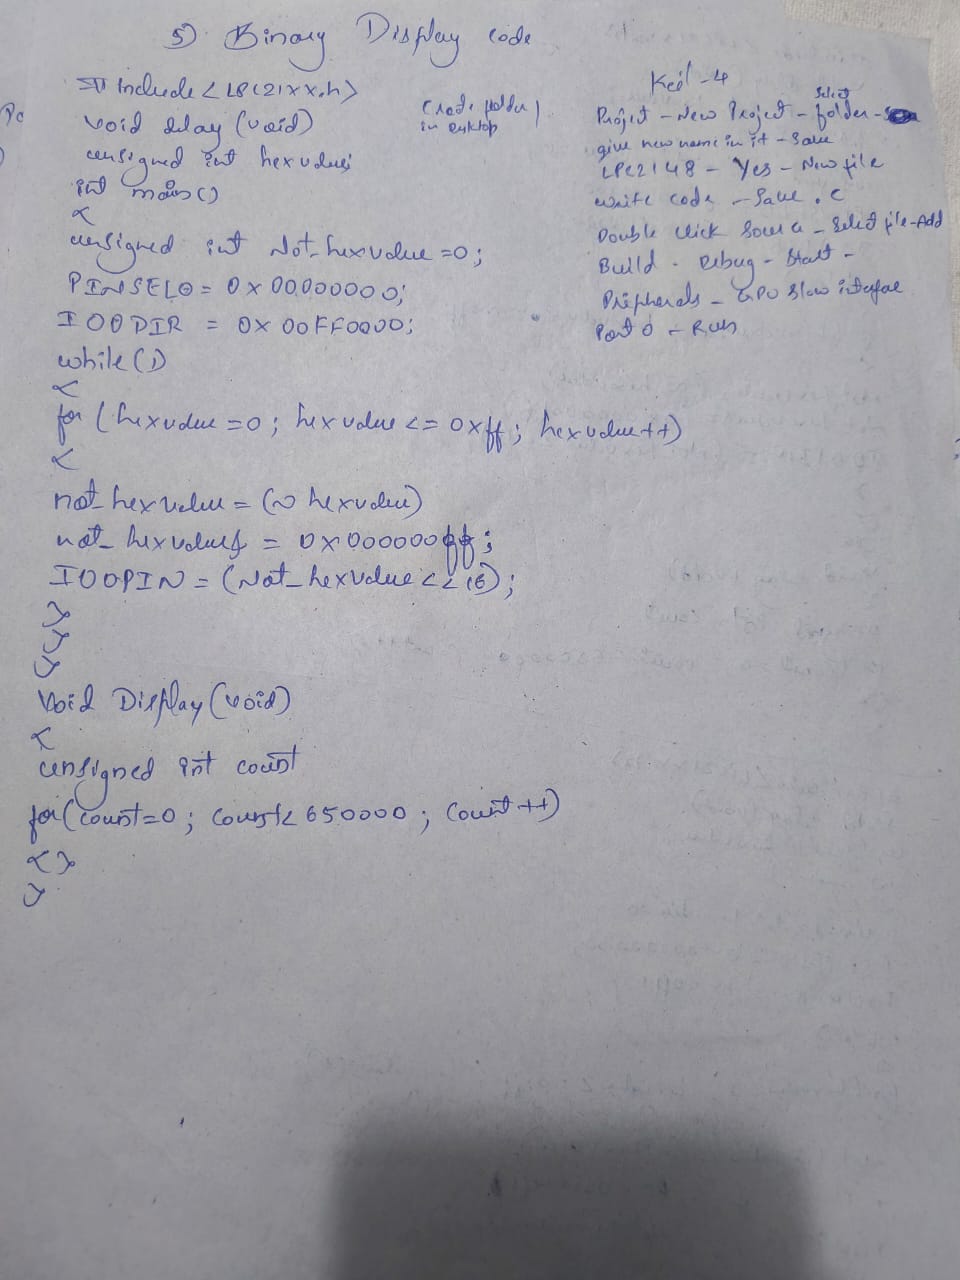 5) Binary Display code
# Include <LPC21xx.h>
void delay (void)
unsigned int hexvalue;
int main()
{
unsigned int Not_hexvalue =0;
PINSEL0 = 0x00000000;
IOODIR = 0x00FF0000;
while(1)
{
for (hexvalue =0; hexvalue <= 0xff; hexvalue++)
{
not_hexvalue = (~ hexvalue)
not_hexvalue = 0x000000ff;
IOOPIN = (Not_hexvalue << 16);
}
}
}
Void Display (void)
{
unsigned int count
for(count=0; count< 650000; count++)
{ }
}
(
in Desktop
Keil -4
Select
Project - New Project - folder -
give new name in it - Save
LPC2148 - Yes - New file
write code - Save .c
Double click Source - Select file - Add
Build - Debug - Start -
Peripherals - GPIO Slow interface
Port 0 - Run